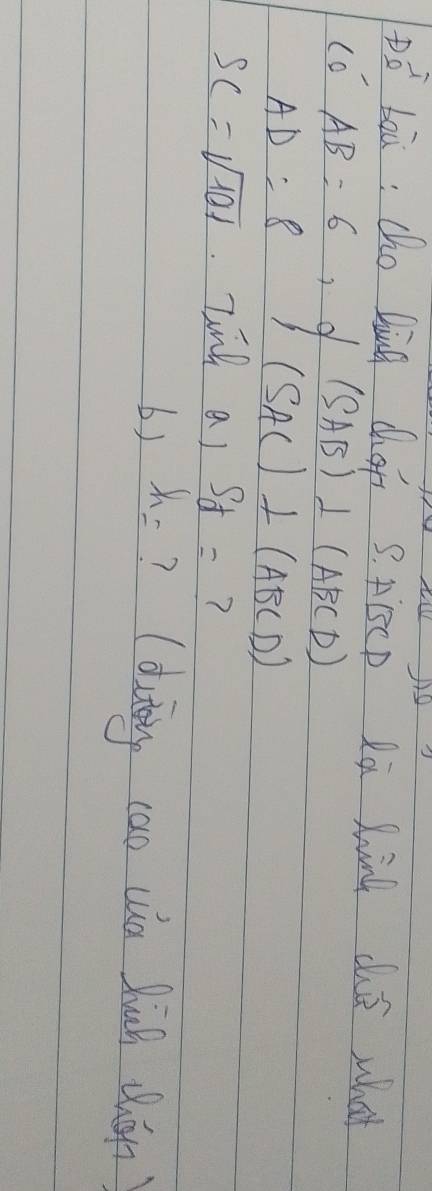 Đề bài: Cho hình chóp S.ABCD là hình chữ nhật
có AB = 6, (SAB) ⊥ (ABCD)
AD = 8, (SAC) ⊥ (ABCD)
SC = √101. Tính a) Sđ = ?
b) h = ? (đường cao của hình chóp)